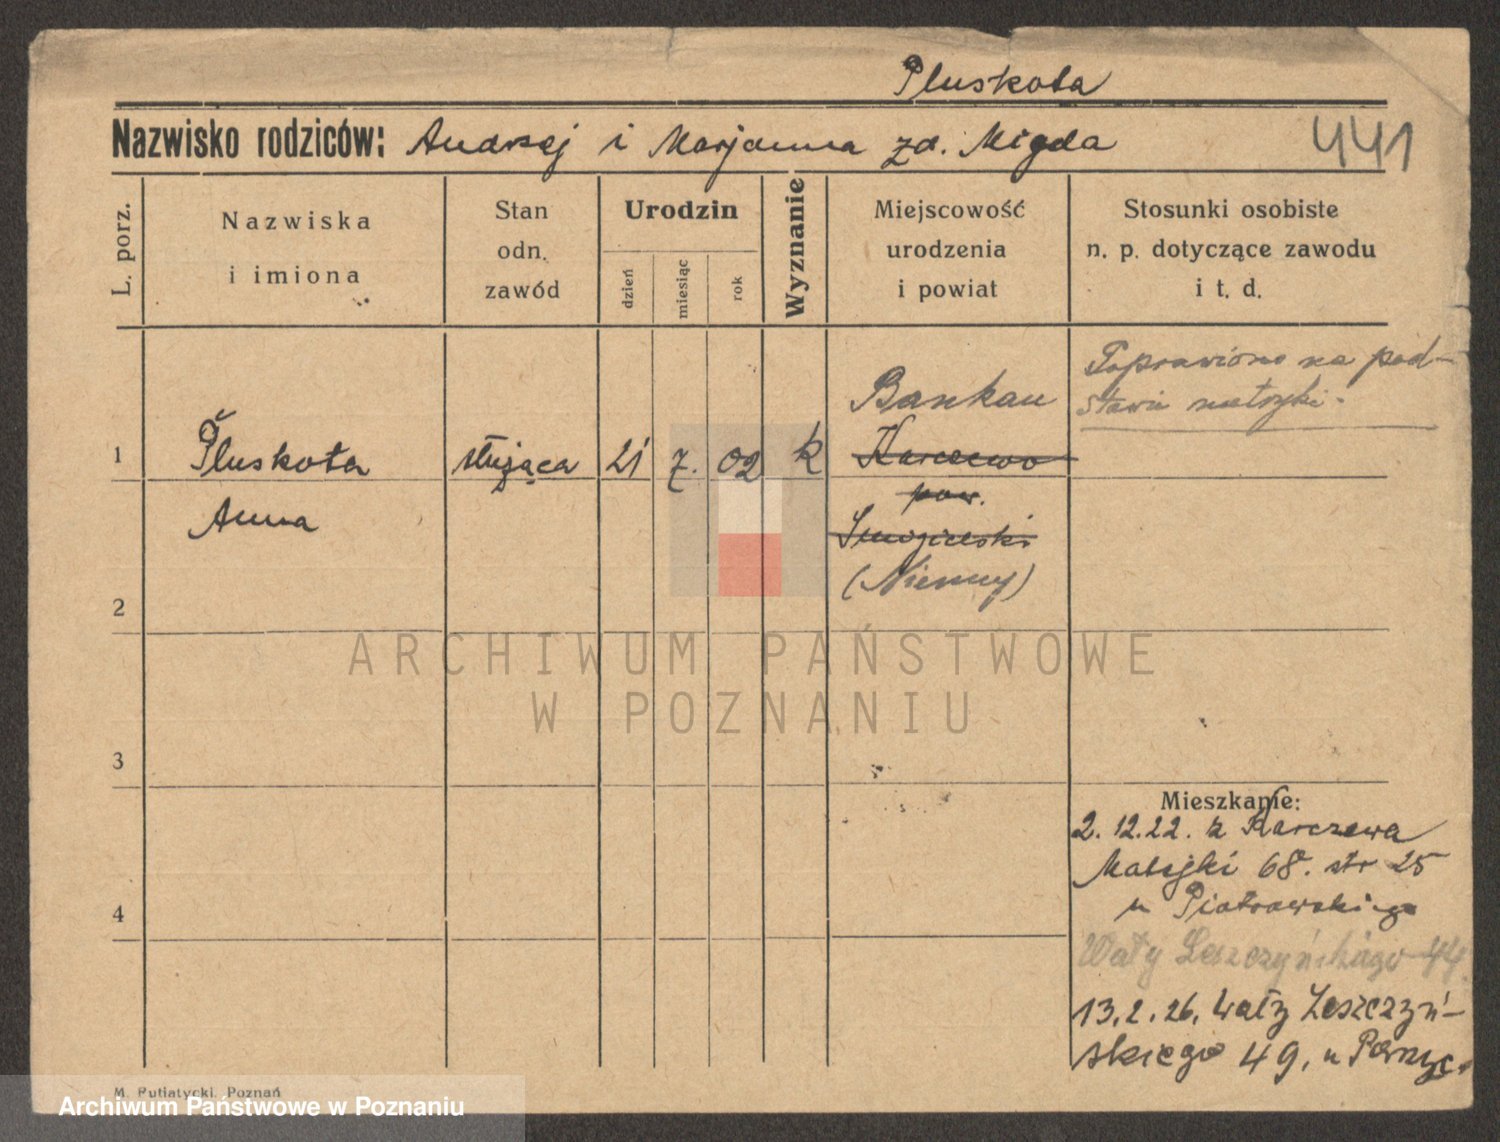 Pluskota
Nazwisko rodziców: Andrzej i Marjanna zd. Migda
441
L. porz.
Nazwiska
i imiona
Stan
odn.
zawód
Urodzin
dzień
miesiąc
rok
Wyznanie
Miejscowość
urodzenia
i powiat
Stosunki osobiste
n. p. dotyczące zawodu
i t. d.
Poprawiono na pod-
stawie metryki.
Bankau
1 Pluskota służąca 21 7. 02 k Karczewo
Anna
pow.
Smigielski
(Niemcy)
2
3
4
Mieszkanie:
2. 12. 22. z Karczewa
Matejki 68. str 25
u Piotrowskiego
Wały Leszczyńskiego 44
13. 2. 26. Wały Leszczyń-
skiego 49, u
M. Putiatycki, Poznań
ARCHIWUM PAŃSTWOWE
W POZNANIU
Archiwum Państwowe w Poznaniu